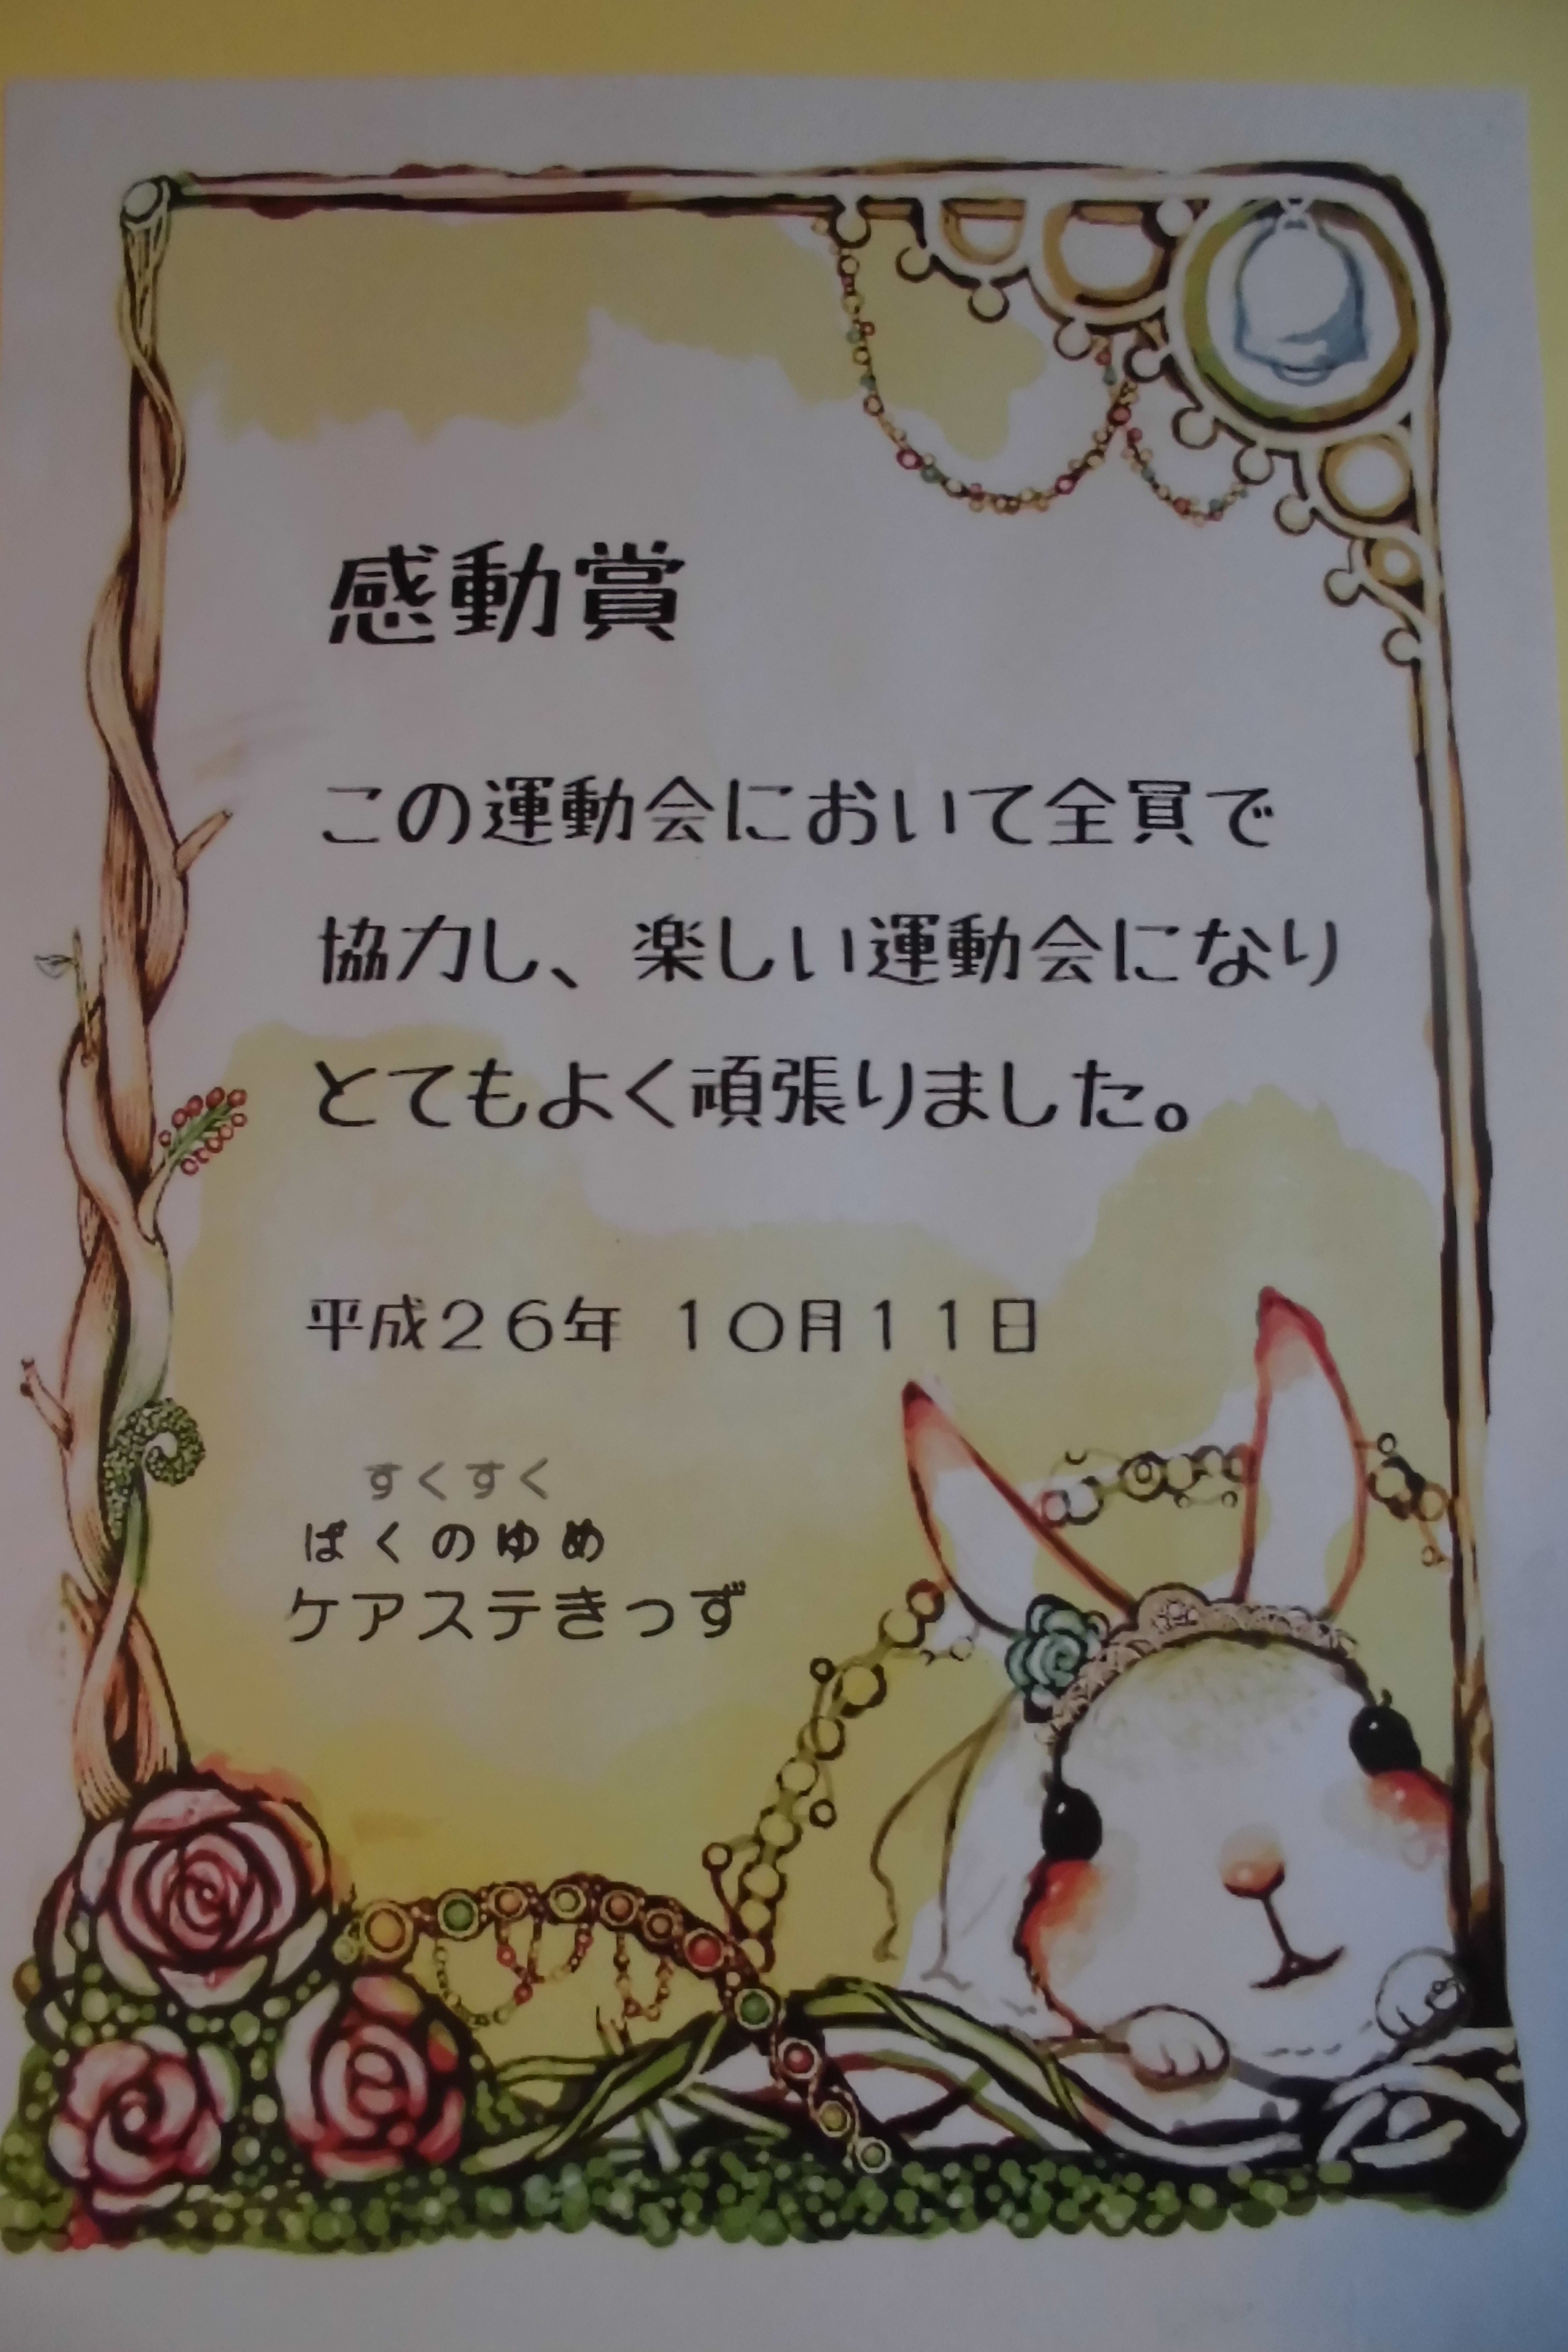 感動賞
この運動会において全員で
協力し、楽しい運動会になり
とてもよく頑張りました。
平成26年 10月11日
すくすく
ばくのゆめ
ケアステきっず